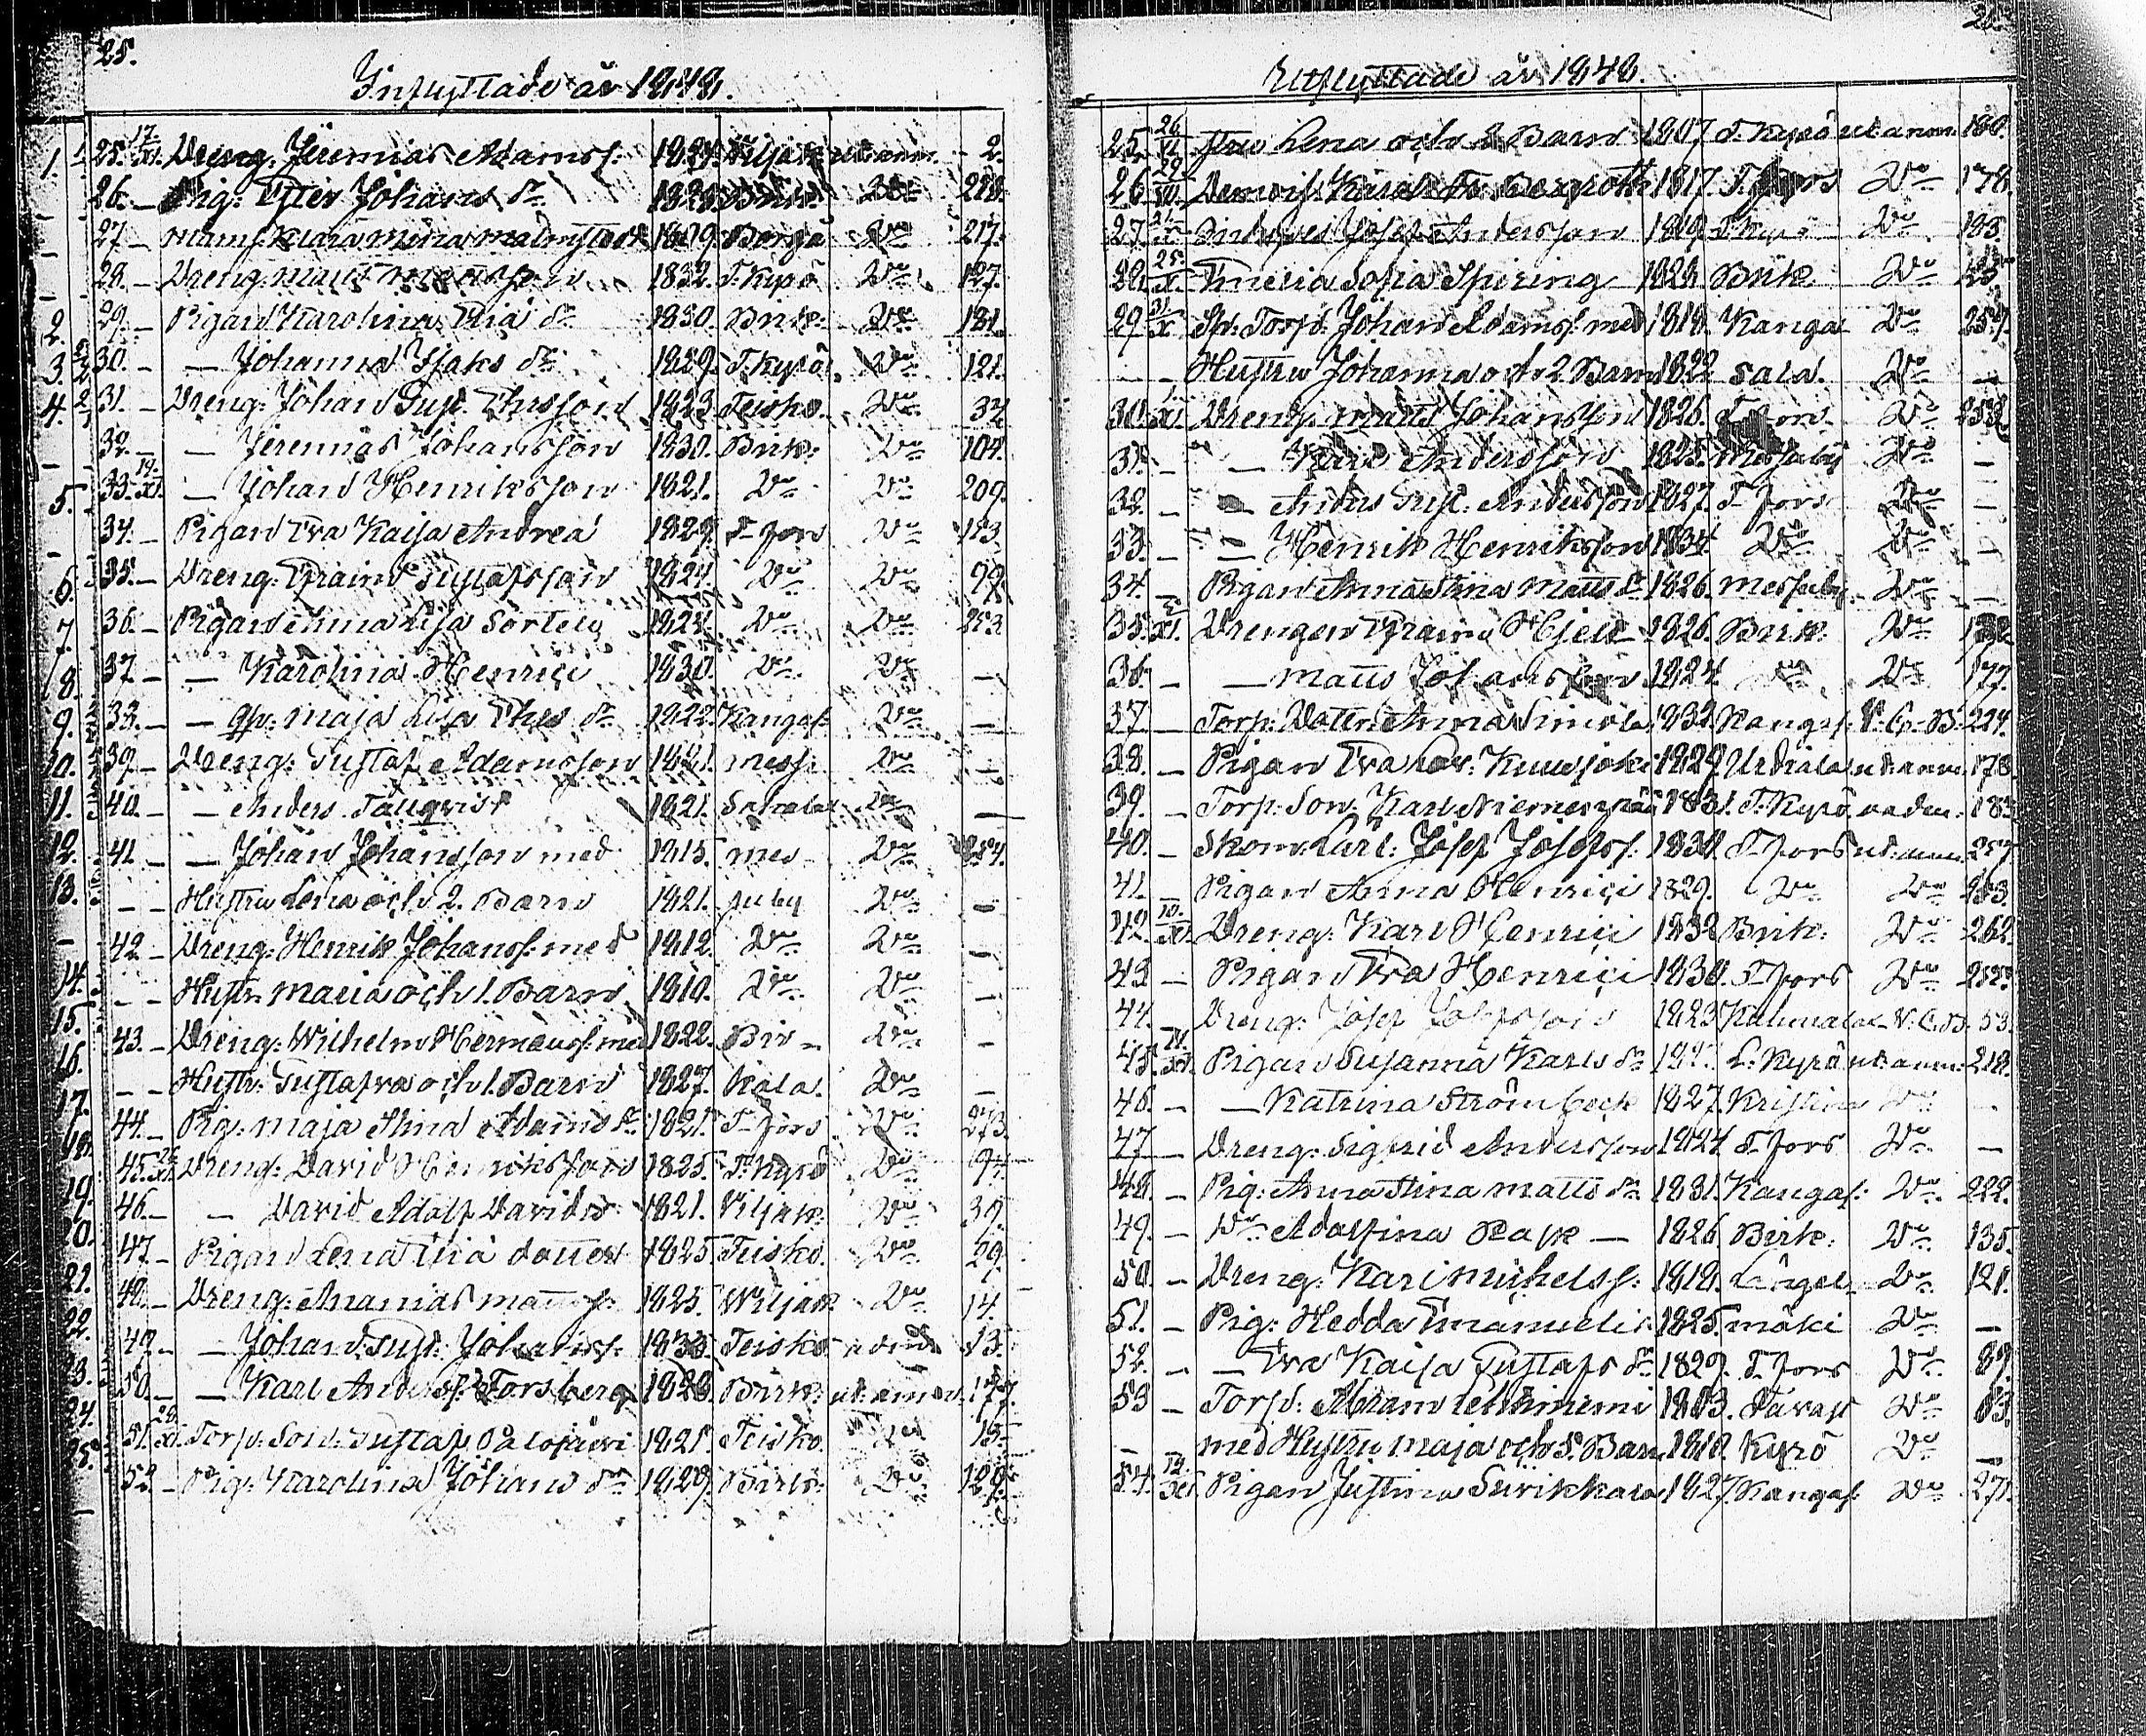 25.
Inflyttade år 1848.
25. 17/XI. Dreng: Jeremias Adamss: 1824. Viljak: ut. anm. 2.
26. — Pig: Johans dr 1828. Birk: Do 218.
27. — Mams: Klara Mina Malmstedt 1829. Borgå Do 217.
28. — Dreng: Matts Mattsson 1832. T. Kyrö Do 127.
29. — Pigan Karolina Eliä dr 1830. Birk: Do 181.
30. — — Johanna Isaks dr 1829. T. Kyrö Do 121.
31. — Dreng: Johan Gust. Thsson 1823. Teisko. Do 37.
32. — — Jeremias Johansson 1830. Birk: Do 104.
33. 19/XI. — Johan Henriksson 1821. Do Do 209.
34. — Pigan Eva Kaisa Andreä 1829. T-fors Do 183.
35. — Dreng: Efraim Gustafsson 1824. Do Do 99.
36. — Pigan Anna Lisa Sorteli 1824. Do Do 253.
37. — — Karolina Henrici 1830. Do Do —
38. — — qv: Maja Lisa Thes dr 1822. Kangas: Do —
39. — Dreng: Gustaf Adamsson 1821. Mess: Do —
40. — — Anders Tällqvist 1821. Do —
41. — — Johan Johansson med 1815. Mes- Do 254.
— — Hustru Lena och 2. Barn 1821. suby Do —
42. — Dreng: Henrik Johanss: med 1812. Do Do —
— — Hustr. Maria och 1. Barn 1810. Do Do —
43. — Dreng: Wilhelm Hermanss: med 1822. Bir- Do —
— — Hustr: Gustafva och 1. Barn 1827. kala. Do —
44. — Pig: Maja Stina Adams dr 1821. T-fors Do 273.
45. 26/XI. Dreng: David Henriksson 1825. T. Kyrö Do 94.
46. — — David Adolf Davids: 1821. Viljak: Do 39.
47. — Pigan Lena 1825. Teisko. Do 29.
48. — Dreng: Ananias Matts: 1825. Wiljak. Do 14.
49. — — Johan Gust: Johanss: 1833. Teisko 13.
50. — — Karl Anderss: Forsberg 1828. Birk: ut. anm. 177.
51. 28/XI. Torp: Son: Gustaf Palojärvi 1825 Teisko Do 15.
52. — Pig: Karolina Johans dr 1829. Birk: Do 129.
26.
Utflyttade år 1848.
25. 26/XI Hustru Lena och 2 Barn 1807. T. Kyrö ut anm. 188.
26. 29/XII. Demois: 1817. T. fors Do 178.
27. Inhyses Josef Andersson 1819. T. Kyrö Do 183.
28. 25/X. Amelia Sofia Spiring 1828. Birk Do
29. 31/X Sp: Torp: Johan Adams: med 1818. Kanga Do 257.
— — Hustru Johanna och 2 Barn 1822 sala. Do —
30. 1/XI. Dreng. Matts Johansson 1826. T. fors. Do 252.
31. — — Karl Andersson 1825. Messuby Do —
32. — — Anders Gust: Andersson 1827. T-fors Do —
33. — — Henrik Henriksson 1834. Do Do —
34. — Pigan Anna Stina Matts dr 1826. Messuby Do —
35. 3/XI. Drengen Efraim Hjelt 1826. Birk: Do 132
36. — — Matts Johansson 1824. Do Do 177.
37. — Torp: Dotter: Anna Simola 1832. Kangas: V. C. B. 224.
38. — Pigan Eva Kuusjoki 1829. Urdiala ut anm. 178.
39. — Torp: Son: Karl Niemenpää 1831. T. Kyrö na den. 183.
40. — Skom: Lärl: Josef Josefss: 1830. T-fors ut. anm. 257
41. — Pigan Anna Henrici 1829. Do Do 253.
42. 10/XI. Dreng: Karl Henrici 1832 Birk: Do 262.
43 — Pigan Eva Henrici 1830. T-fors Do 252.
44. — Dreng: Josef Josefsson 1823 Kuhmalak. V. C. B. 53.
45. Pigan Susanna Karls dr L: Kyrö ut anm: 218.
46. — — Katrina Strömbeck 1827. Kristina Do —
47 — Dreng: Sigfrid Andersson 1824 T-fors Do —
48. — Pig: Anna Stina Matts dr 1831. Kangas: Do 222.
49. — Do Adolfina Rask — 1826 Birk: Do 135.
50. — Dreng: Karl Michelss: 1818. Lengel- Do 121.
51. — Pig: Hedda Emanuelis. 1825. mäki Do —
52. — — Eva Kaisa Gustafs dr 1829. T. fors Do 89.
53 — Torp: Abram 1813. Tavast Do 83.
— med Hustru Maja och 5. Barn 1818. Kyrö Do —
54. 12/XII. Pigan Justina Siirikkala 1827. Kangas: Do 271.